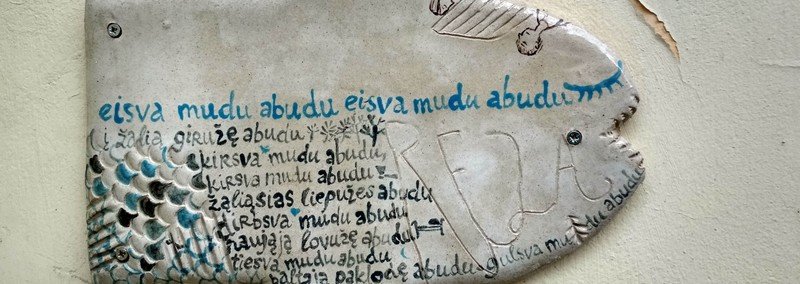 eisva mudu abudu eisva mudu abudu
į žalią giružę abudu
skirsva mudu abudu,
kirsva mudu abudu
žaliąsias liepužes abudu
dirbsva mudu abudu
naująją lovužę abudu
tiesva mudu abudu
baltąją paklodę abudu gulsva mudu abudu
REZA